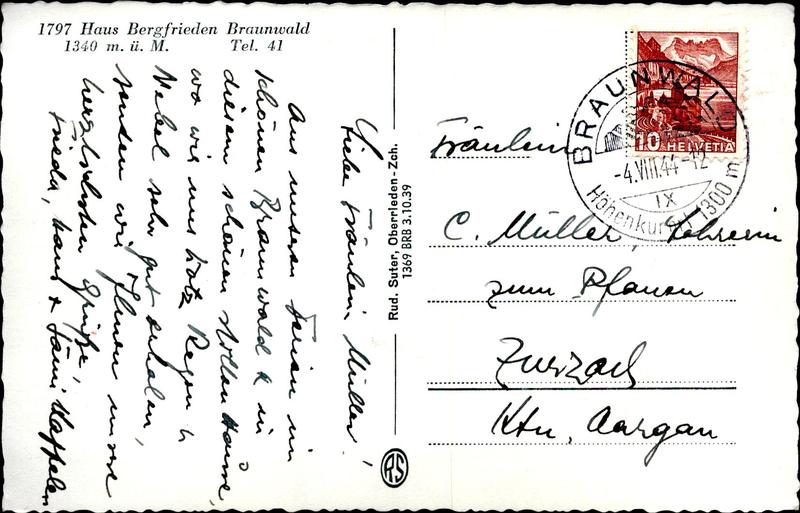 1797 Haus Bergfrieden Braunwald
1340 m. ü. M. Tel. 41
Liebe Fräulein Müller!
Aus unseren Ferien im
schönen Braunwald & in
diesem schönen stillen Hause,
wo wir uns trotz Regen &
Nebel sehr gut erholen,
senden wir Ihnen unsere
herzlichsten Grüsse,
Frieda, Hans &
Rud. Suter, Oberrieden-Zch.
1369 BRB 3.10.39
RS
10 HELVETIA
BRAUNWALD
-4.VIII.44-12
IX
Höhenkurort 1300 m
Fräulein
C. Müller, Lehrerin
zum Pflanen
Zurzach
Ktn. Aargau